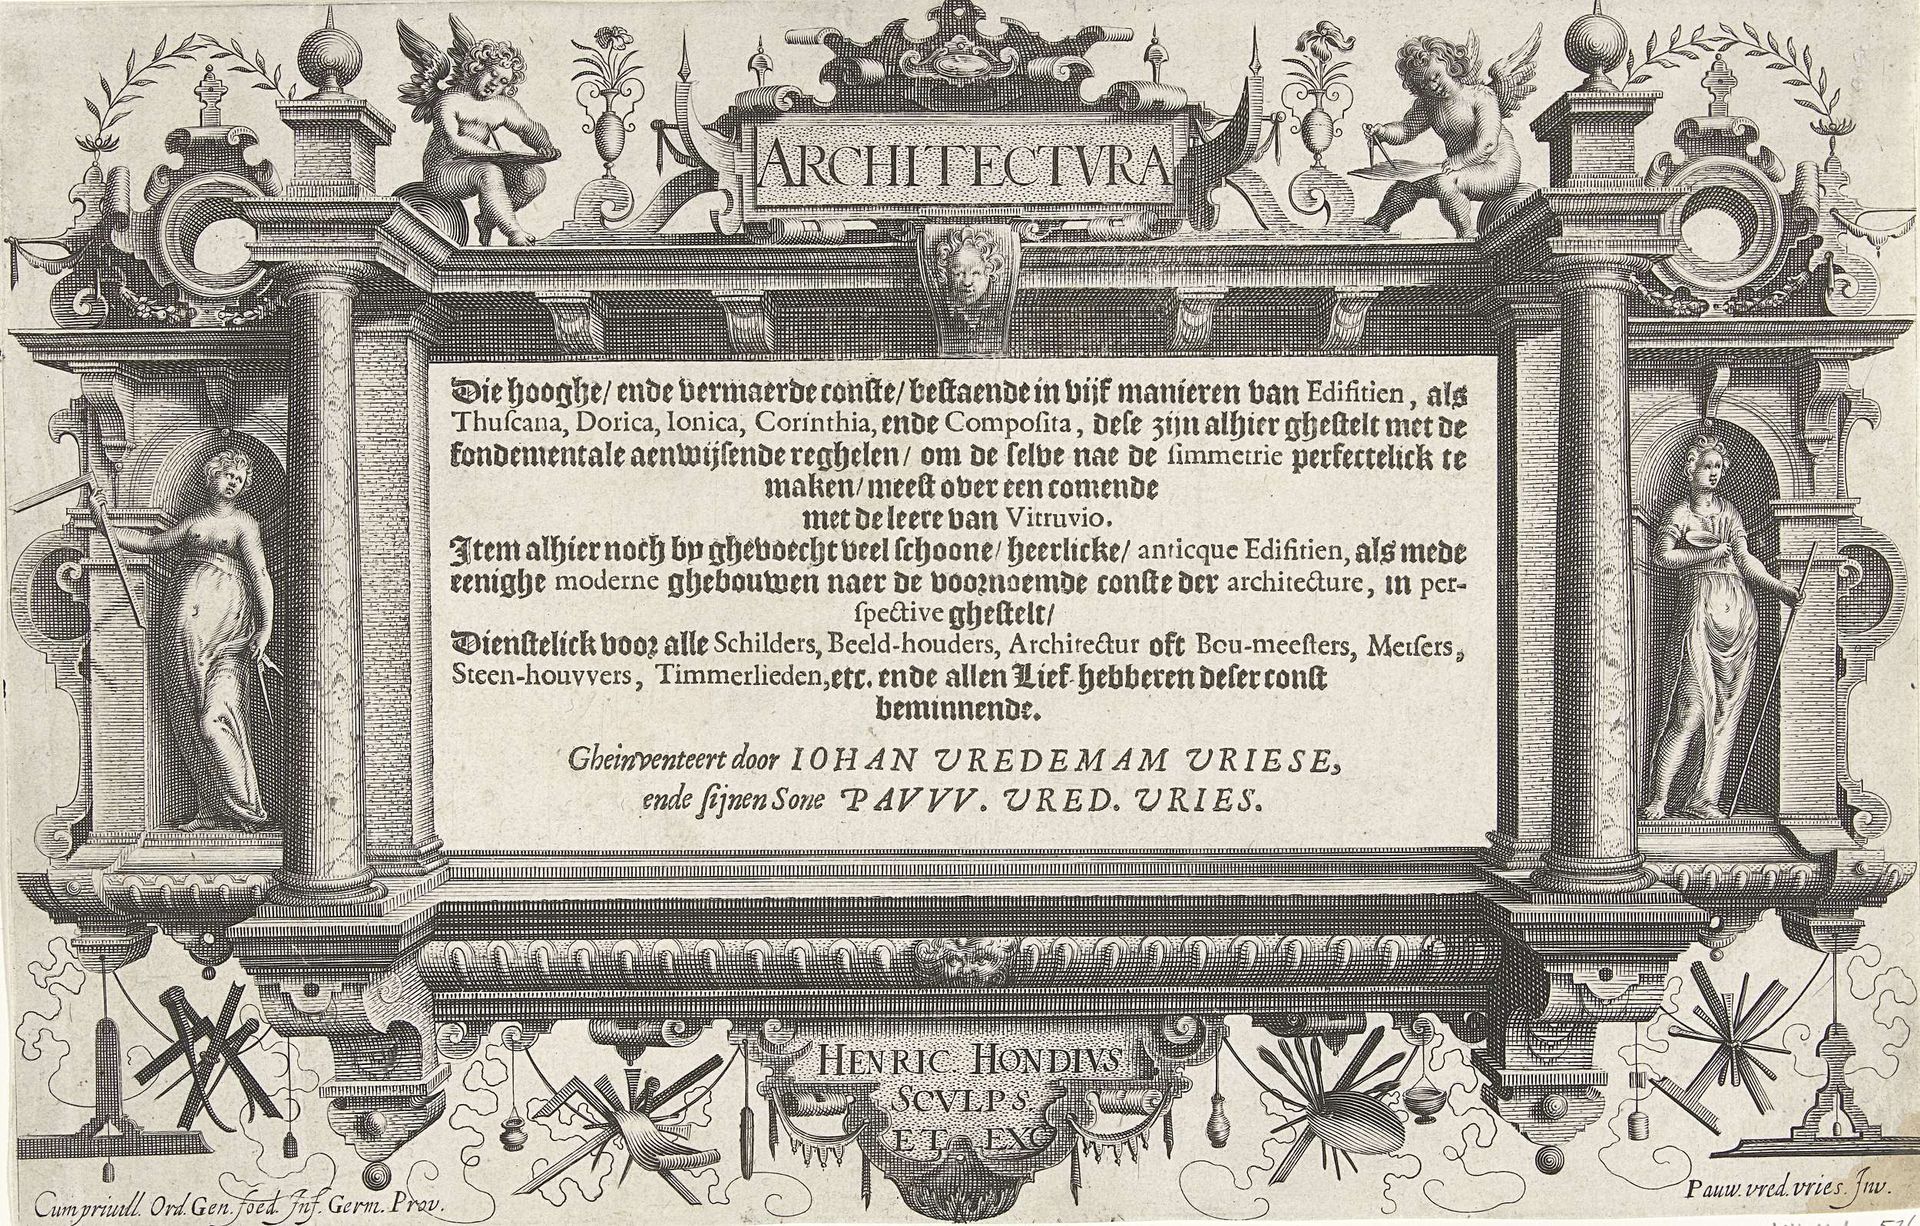 ARCHITECTVRA
Die hooghe/ ende vermaerde conste/ bestaende in vijf manieren van Edifitien, als
Thuſcana, Dorica, Ionica, Corinthia, ende Compoſita, dese zijn alhier ghestelt met de
fondementale aenwijsende reghelen/ om de selve nae de ſimmetrie perfectelick te
maken/ meest over een comende
met de leere van Vitruvio.
Item alhier noch by ghevoecht veel schoone/ heerlicke/ anticque Edifitien, als mede
eenighe moderne ghebouwen naer de voornoemde conste der architecture, in per-
ſpective ghestelt/
Dienstelick voor alle Schilders, Beeld-houders, Architectur oft Bou-meeſters, Metſers,
Steen-houvvers, Timmerlieden, etc. ende allen Lief-hebberen deser const
beminnende.
Gheinventeert door IOHAN VREDEMAM VRIESE,
ende ſijnen Sone PAVVV. VRED. VRIES.
HENRIC HONDIVS
SCVLPS
ET EXC
Cum privill. Ord. Gen. foed. Inf. Germ. Prov.
Pauw. vred. vries. Inv.